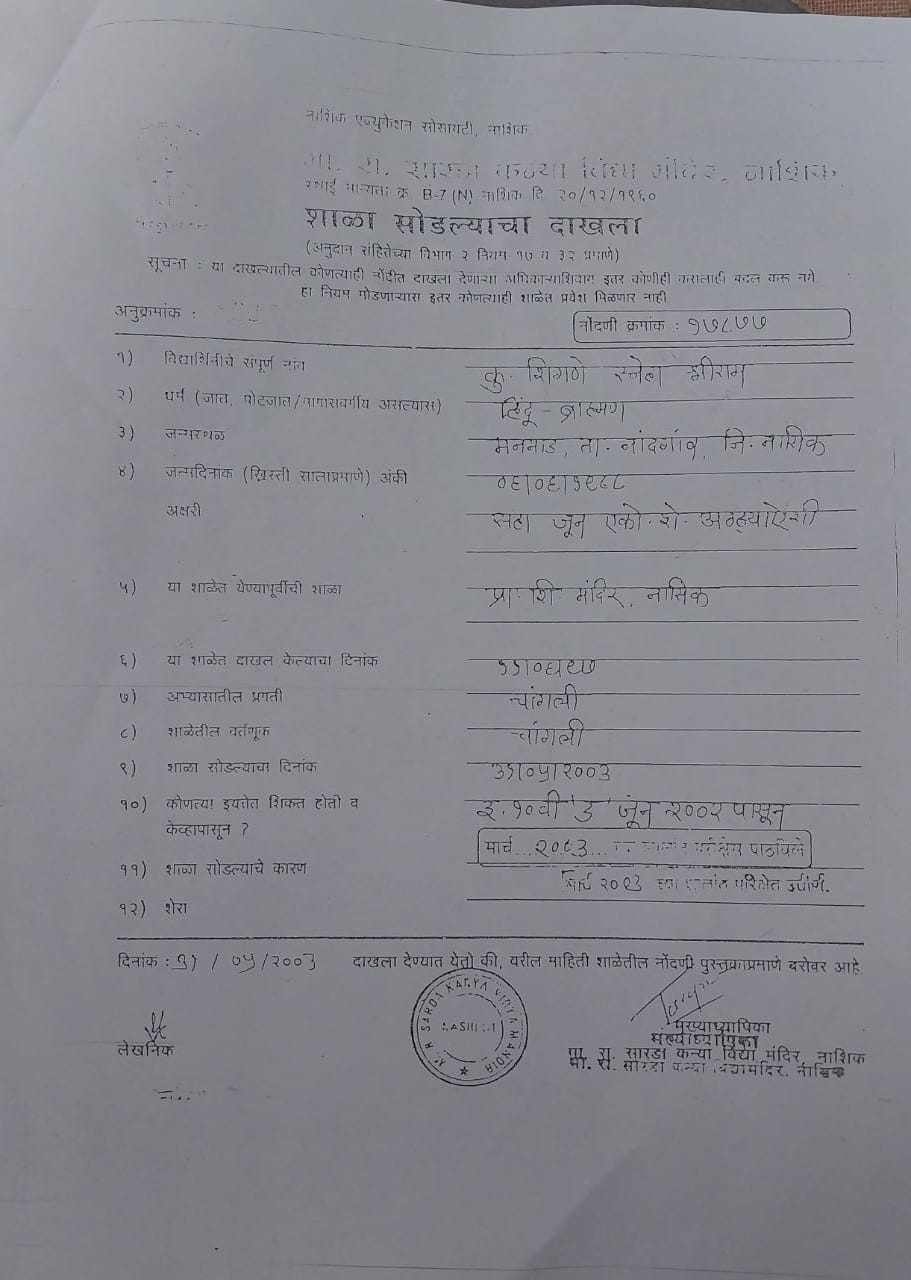 नाशिक एज्युकेशन सोसायटी, नाशिक
मा. रा. सारडा कन्या विद्या मंदिर, नाशिक
स्थाई मान्यता क्र B-7 (N) नाशिक दि. २०/१२/१९६०
शाळा सोडल्याचा दाखला
(अनुदान संहितेच्या विभाग २ नियम १७ व ३२ प्रमाणे)
सूचना : या दाखल्यातील कोणत्याही नोंदीत दाखला देणाऱ्या अधिकाऱ्याशिवाय इतर कोणीही कसलाही बदल करू नये
हा नियम मोडणाऱ्यास इतर कोणत्याही शाळेत प्रवेश मिळणार नाही
अनुक्रमांक :
नोंदणी क्रमांक : १७८७७
१) विद्यार्थिनीचे संपूर्ण नांव कु. शिंगणे स्नेहा श्रीराम
२) धर्म (जात, पोटजात/मागासवर्गीय असल्यास) हिंदू - ब्राह्मण
३) जन्मस्थळ मनमाड, ता. नांदगांव, जि. नासिक
४) जन्मदिनांक (ख्रिस्ती सालाप्रमाणे) अंकी ०६|०६|१९८८
अक्षरी सहा जून एको. शे. अठ्ठ्याऐंशी
५) या शाळेत येण्यापूर्वीची शाळा प्रा. शि. मंदिर, नासिक
६) या शाळेत दाखल केल्याचा दिनांक ११|०६|९७
७) अभ्यासातील प्रगती चांगली
८) शाळेतील वर्तणूक चांगली
९) शाळा सोडल्याचा दिनांक ३१|०५|२००३
१०) कोणत्या इयत्तेत शिकत होती व इ. १० वी 'ड' जून २००२ पासून
केव्हापासून ?
मार्च २००३ पाठविले
११) शाळा सोडल्याचे कारण
मार्च २००३ च्या शालांत परिक्षेत उत्तीर्ण.
१२) शेरा
दिनांक : ३१ / ०५ / २००३ दाखला देण्यात येतो की, वरील माहिती शाळेतील नोंदणी पुस्तकाप्रमाणे बरोबर आहे.
लेखनिक
M. R. SARDA KANYA VIDYA MANDIR
NASHIK-1
मुख्याध्यापिका
मुख्याध्यापिका
मा. रा. सारडा कन्या विद्या मंदिर, नाशिक
मा. रा. सारडा कन्या विद्यामंदिर, नाशिक